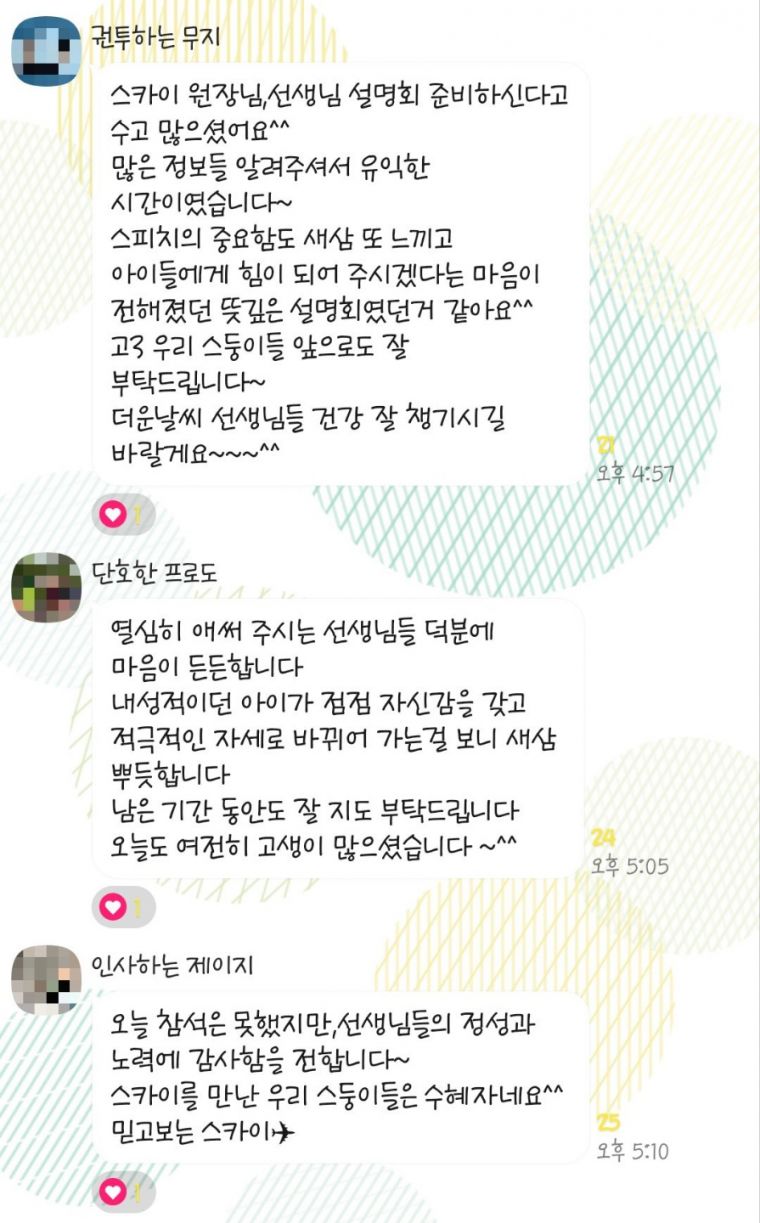 권투하는 무지
스카이 원장님,선생님 설명회 준비하신다고
수고 많으셨어요^^
많은 정보들 알려주셔서 유익한
시간이였습니다~
스피치의 중요함도 새삼 또 느끼고
아이들에게 힘이 되어 주시겠다는 마음이
전해졌던 뜻깊은 설명회였던거 같아요^^
고3 우리 스둥이들 앞으로도 잘
부탁드립니다~
더운날씨 선생님들 건강 잘 챙기시길
바랄게요~~~^^
27
오후 4:57
1
단호한 프로도
열심히 애써 주시는 선생님들 덕분에
마음이 든든합니다
내성적이던 아이가 점점 자신감을 갖고
적극적인 자세로 바뀌어 가는걸 보니 새삼
뿌듯합니다
남은 기간 동안도 잘 지도 부탁드립니다
오늘도 여전히 고생이 많으셨습니다 ~^^
24
오후 5:05
1
인사하는 제이지
오늘 참석은 못했지만,선생님들의 정성과
노력에 감사함을 전합니다~
스카이를 만난 우리 스둥이들은 수혜자네요^^
믿고보는 스카이✈
25
오후 5:10
1